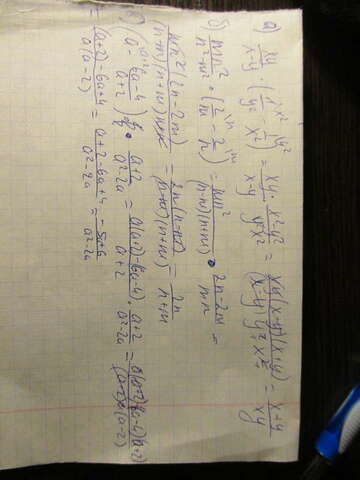 а) xy/x-y · (1/y² - 1/x²) = xy/x-y · x²-y²/y²x² = xy(x-y)(x+y)/(x-y)y²x² = x+y/xy
б) mn²/n²-m² · (2/m - 2/n) = mn²/(n-m)(n+m) · 2n-2m/mn =
mn²(2n-2m)/(n-m)(n+m)mn = 2n(n-m)/(n-m)(n+m) = 2n/n+m
в) (a - 6a-4/a+2) · a+2/a²-2a = a(a+2)-(6a-4)/a+2 · a+2/a²-2a = a(a+2)(6a-4)(a+2)/(a+2)a(a-2)
= (a+2)-6a+4/a(a-2) = a+2-6a+4/a²-2a = -5a+6/a²-2a